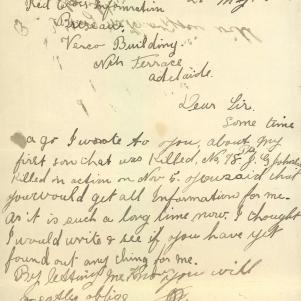 Red Cross Information
Bureau.
Verco Building
Nth Terrace
Adelaide.
Dear Sir.
Some time
ago I wrote to you, about my
first son that was Killed, No 98
Killed in action on Nov 5. you said that
you would get all Informations for me.
As it is such a long time now. I thought
I would write & see if you have yet
found out any thing for me.
By letting me Know you will
greatly oblige